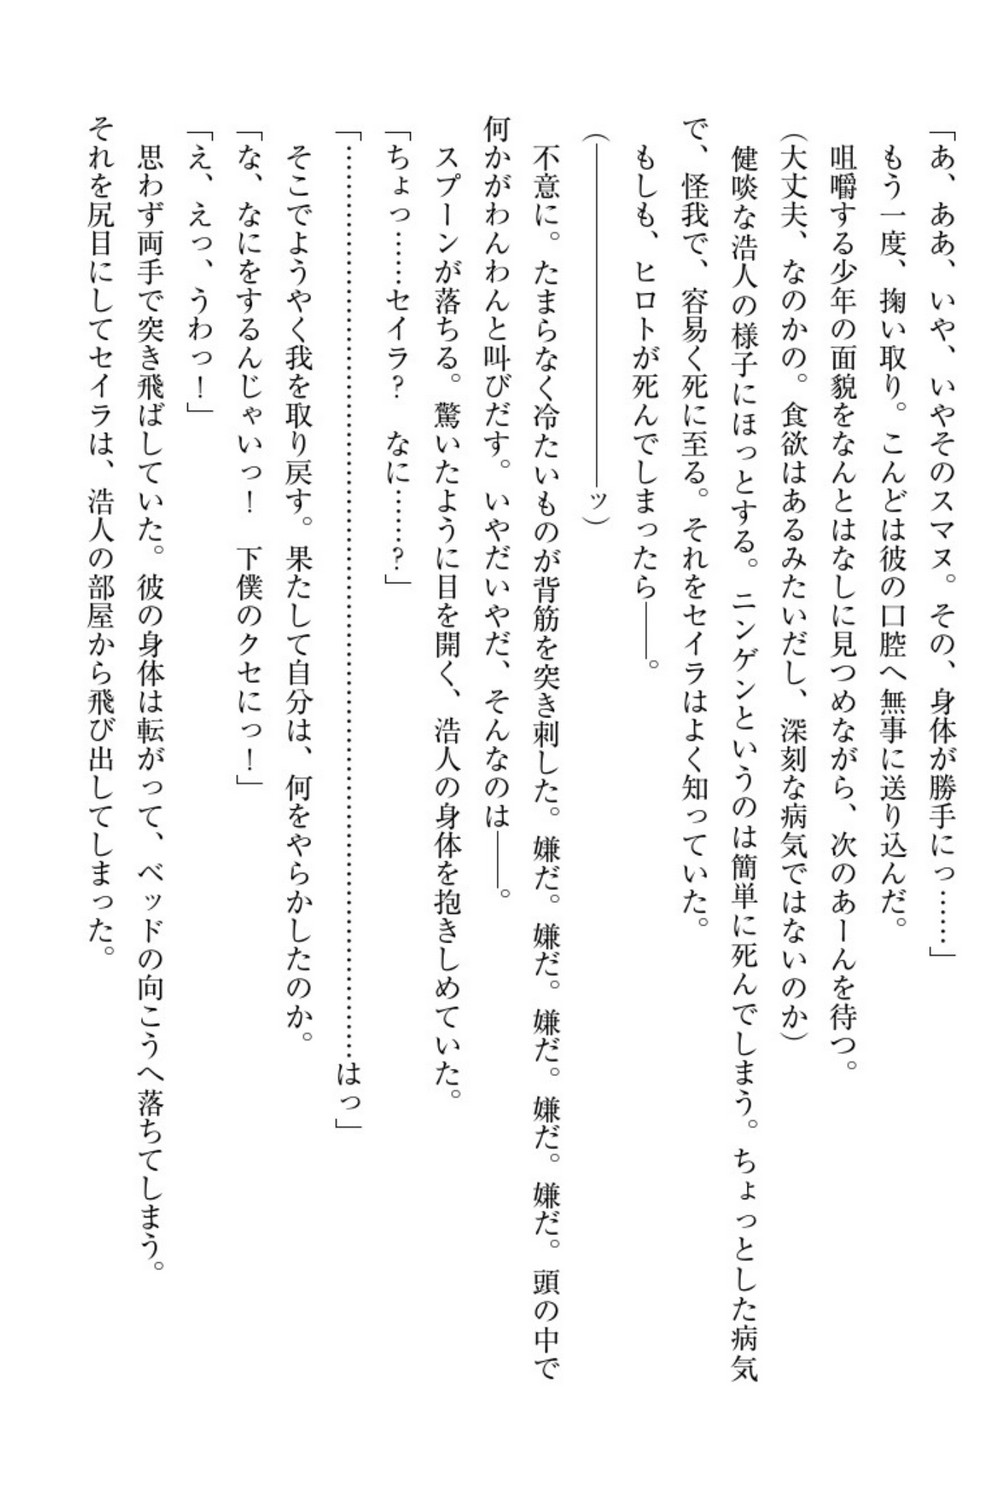 「あ、ああ、いや、いやそのスマヌ。その、身体が勝手にっ……」
もう一度、掬い取り。こんどは彼の口腔へ無事に送り込んだ。
咀嚼する少年の面貌をなんとはなしに見つめながら、次のあーんを待つ。
（大丈夫、なのかの。食欲はあるみたいだし、深刻な病気ではないのか）
健啖な浩人の様子にほっとする。ニンゲンというのは簡単に死んでしまう。ちょっとした病気
で、怪我で、容易く死に至る。それをセイラはよく知っていた。
もしも、ヒロトが死んでしまったら――。
（――――――――――――ッ）
不意に。たまらなく冷たいものが背筋を突き刺した。嫌だ。嫌だ。嫌だ。嫌だ。嫌だ。頭の中で
何かがわんわんと叫びだす。いやだいやだ、そんなのは――。
スプーンが落ちる。驚いたように目を開く、浩人の身体を抱きしめていた。
「ちょっ……セイラ？　なに……？」
「………………………………………………………………………………………はっ」
そこでようやく我を取り戻す。果たして自分は、何をやらかしたのか。
「な、なにをするんじゃいっ！　下僕のクセにっ！」
「え、えっ、うわっ！」
思わず両手で突き飛ばしていた。彼の身体は転がって、ベッドの向こうへ落ちてしまう。
それを尻目にしてセイラは、浩人の部屋から飛び出してしまった。